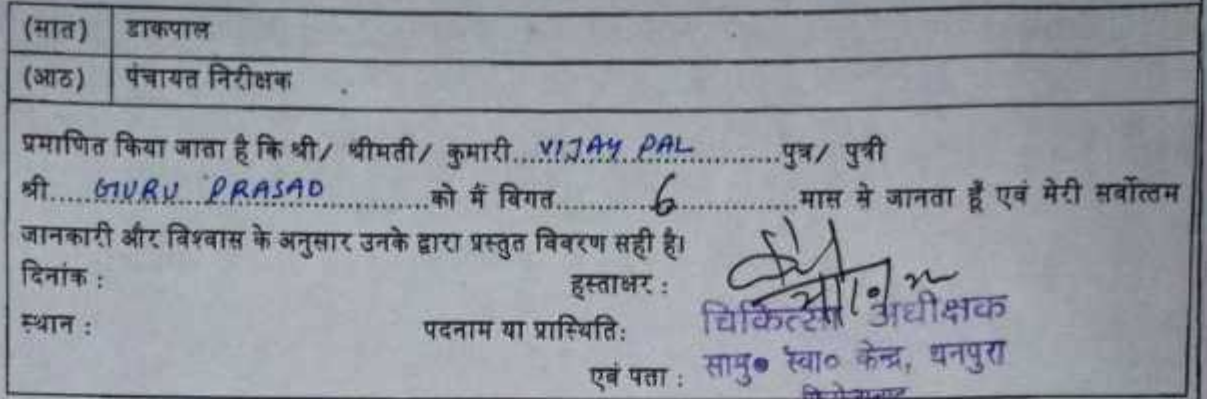 (सात) डाकपाल
(आठ) पंचायत निरीक्षक
प्रमाणित किया जाता है कि श्री/ श्रीमती/ कुमारी...VIJAY PAL............पुत्र/ पुत्री
श्री.....GURU PRASAD............को मैं विगत............6................मास से जानता हूँ एवं मेरी सर्वोत्तम
जानकारी और विश्वास के अनुसार उनके द्वारा प्रस्तुत विवरण सही है।
दिनांक : हस्ताक्षर :
स्थान : पदनाम या प्रास्थिति: चिकित्सा अधीक्षक
एवं पता : सामु० स्वा० केन्द्र, धनपुरा